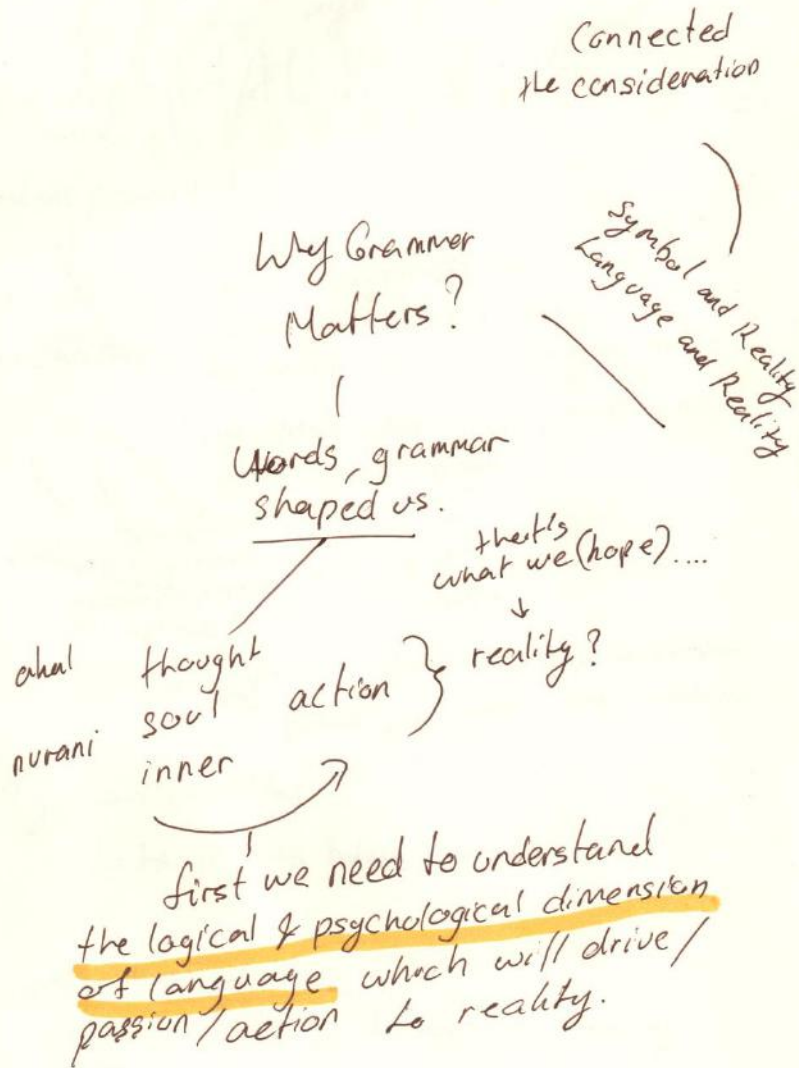 Connected
the consideration
Symbol and Reality
Language and Reality
Why Grammer
Matters?
Words, grammar
shaped us.
that's
what we (hope)....
reality?
akal
thought
soul
action
nurani
inner
first we need to understand
the logical & psychological dimension
of language which will drive/
passion/action to reality.